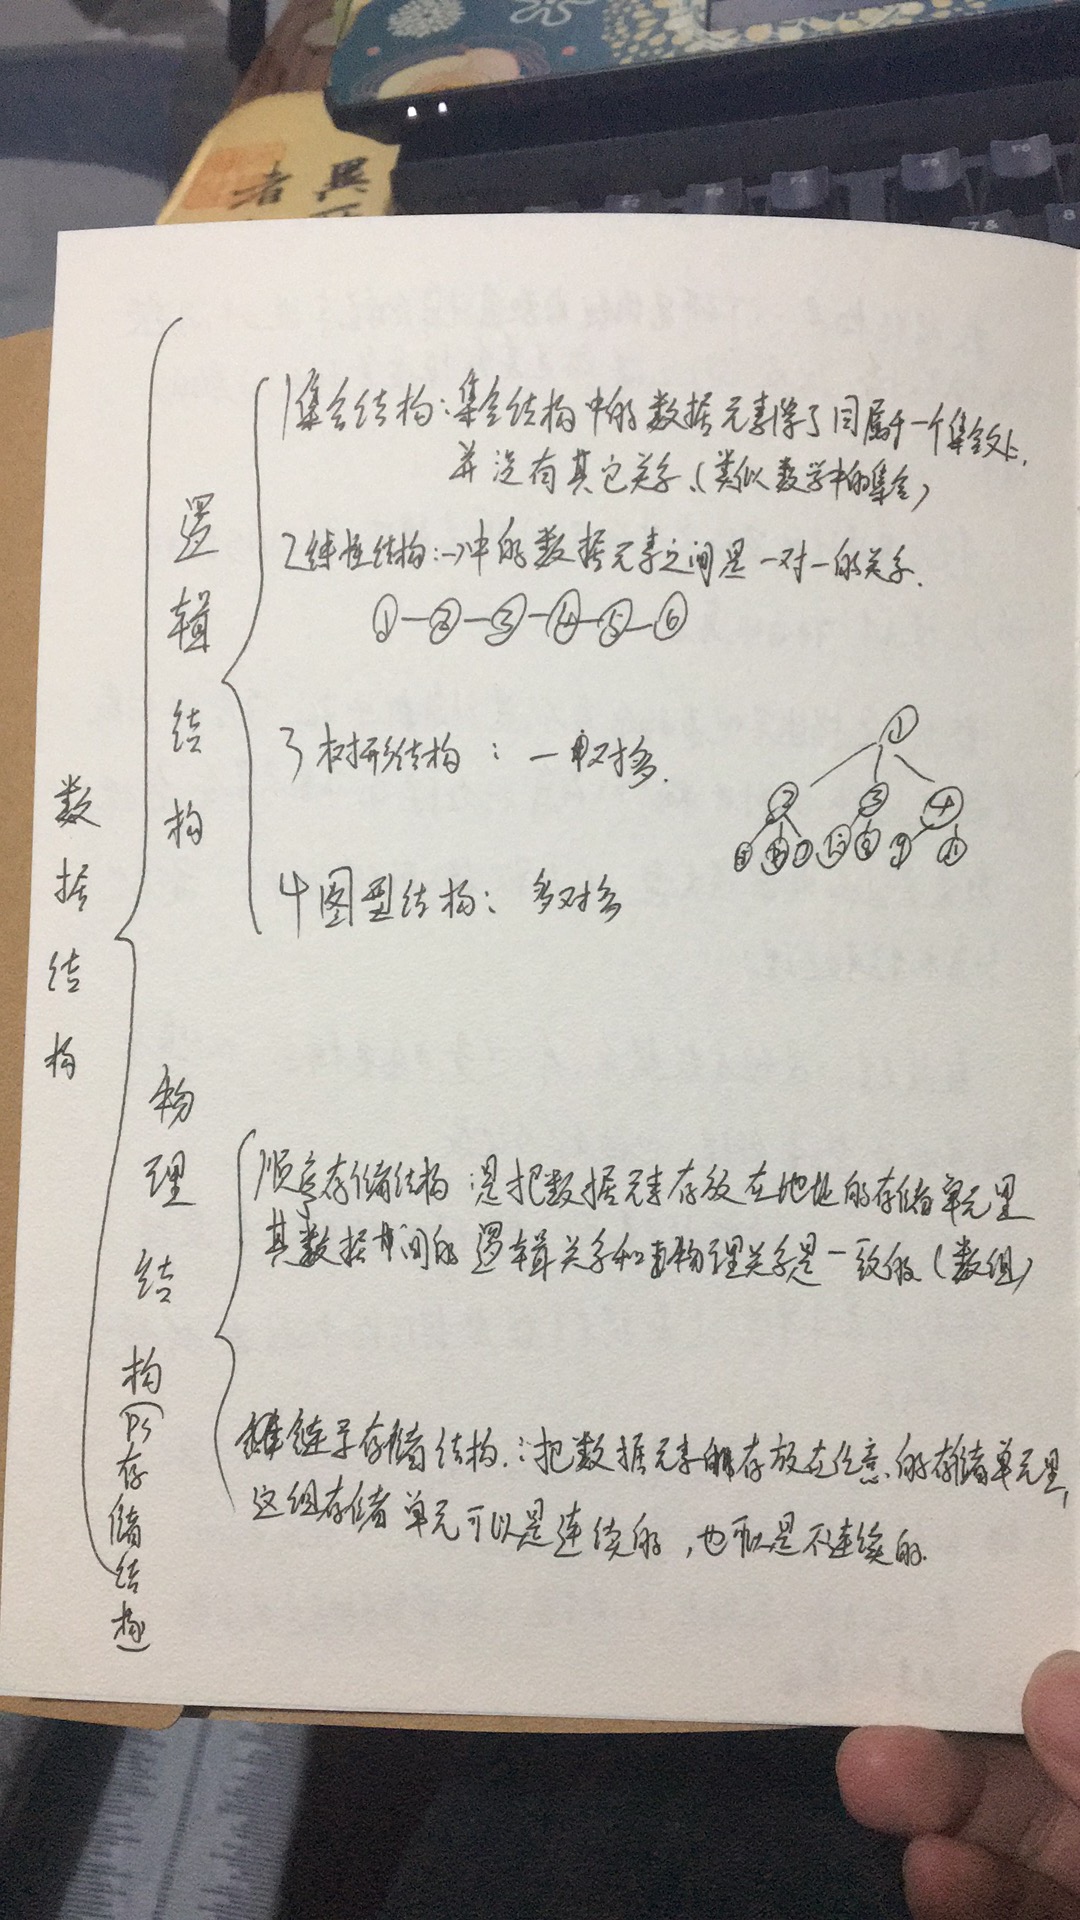 者 異
F2
F3
F4
F5
F6
7&
8
数据结构
逻辑结构
1集合结构:集合结构中的数据元素除了同属于一个集合外,
并没有其它关系、(类似数学中的集合)
2线性结构:~中的数据元素之间是一对一的关系.
①—②—③—④—⑤—⑥
3树形结构: 一对多.
①
② ③ ④
4图型结构: 多对多
物理结构(PS存储结构)
顺序存储结构:是把数据元素存放在地址的存储单元里
其数据间的逻辑关系和物理关系是一致的(数组)
链子存储结构.:把数据元素存放在任意的存储单元里,
这组存储单元可以是连续的,也可以是不连续的.